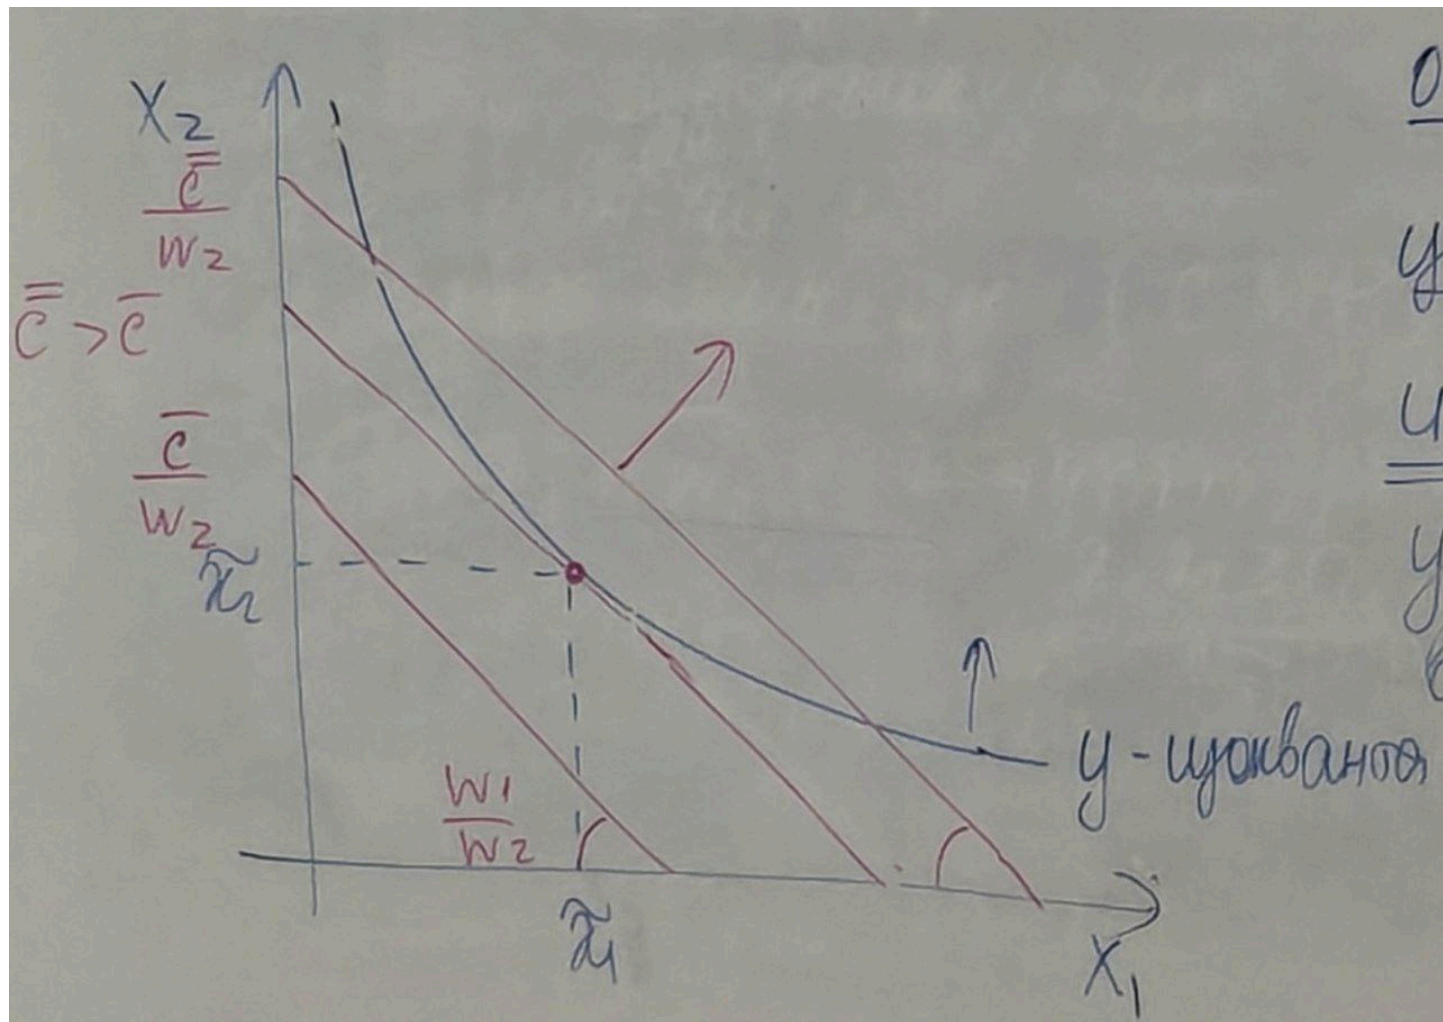 X₂
C̿/W₂
C̿ > C̅
C̅/W₂
x̃₂
W₁/W₂
x̃₁
X₁
y - изокванта